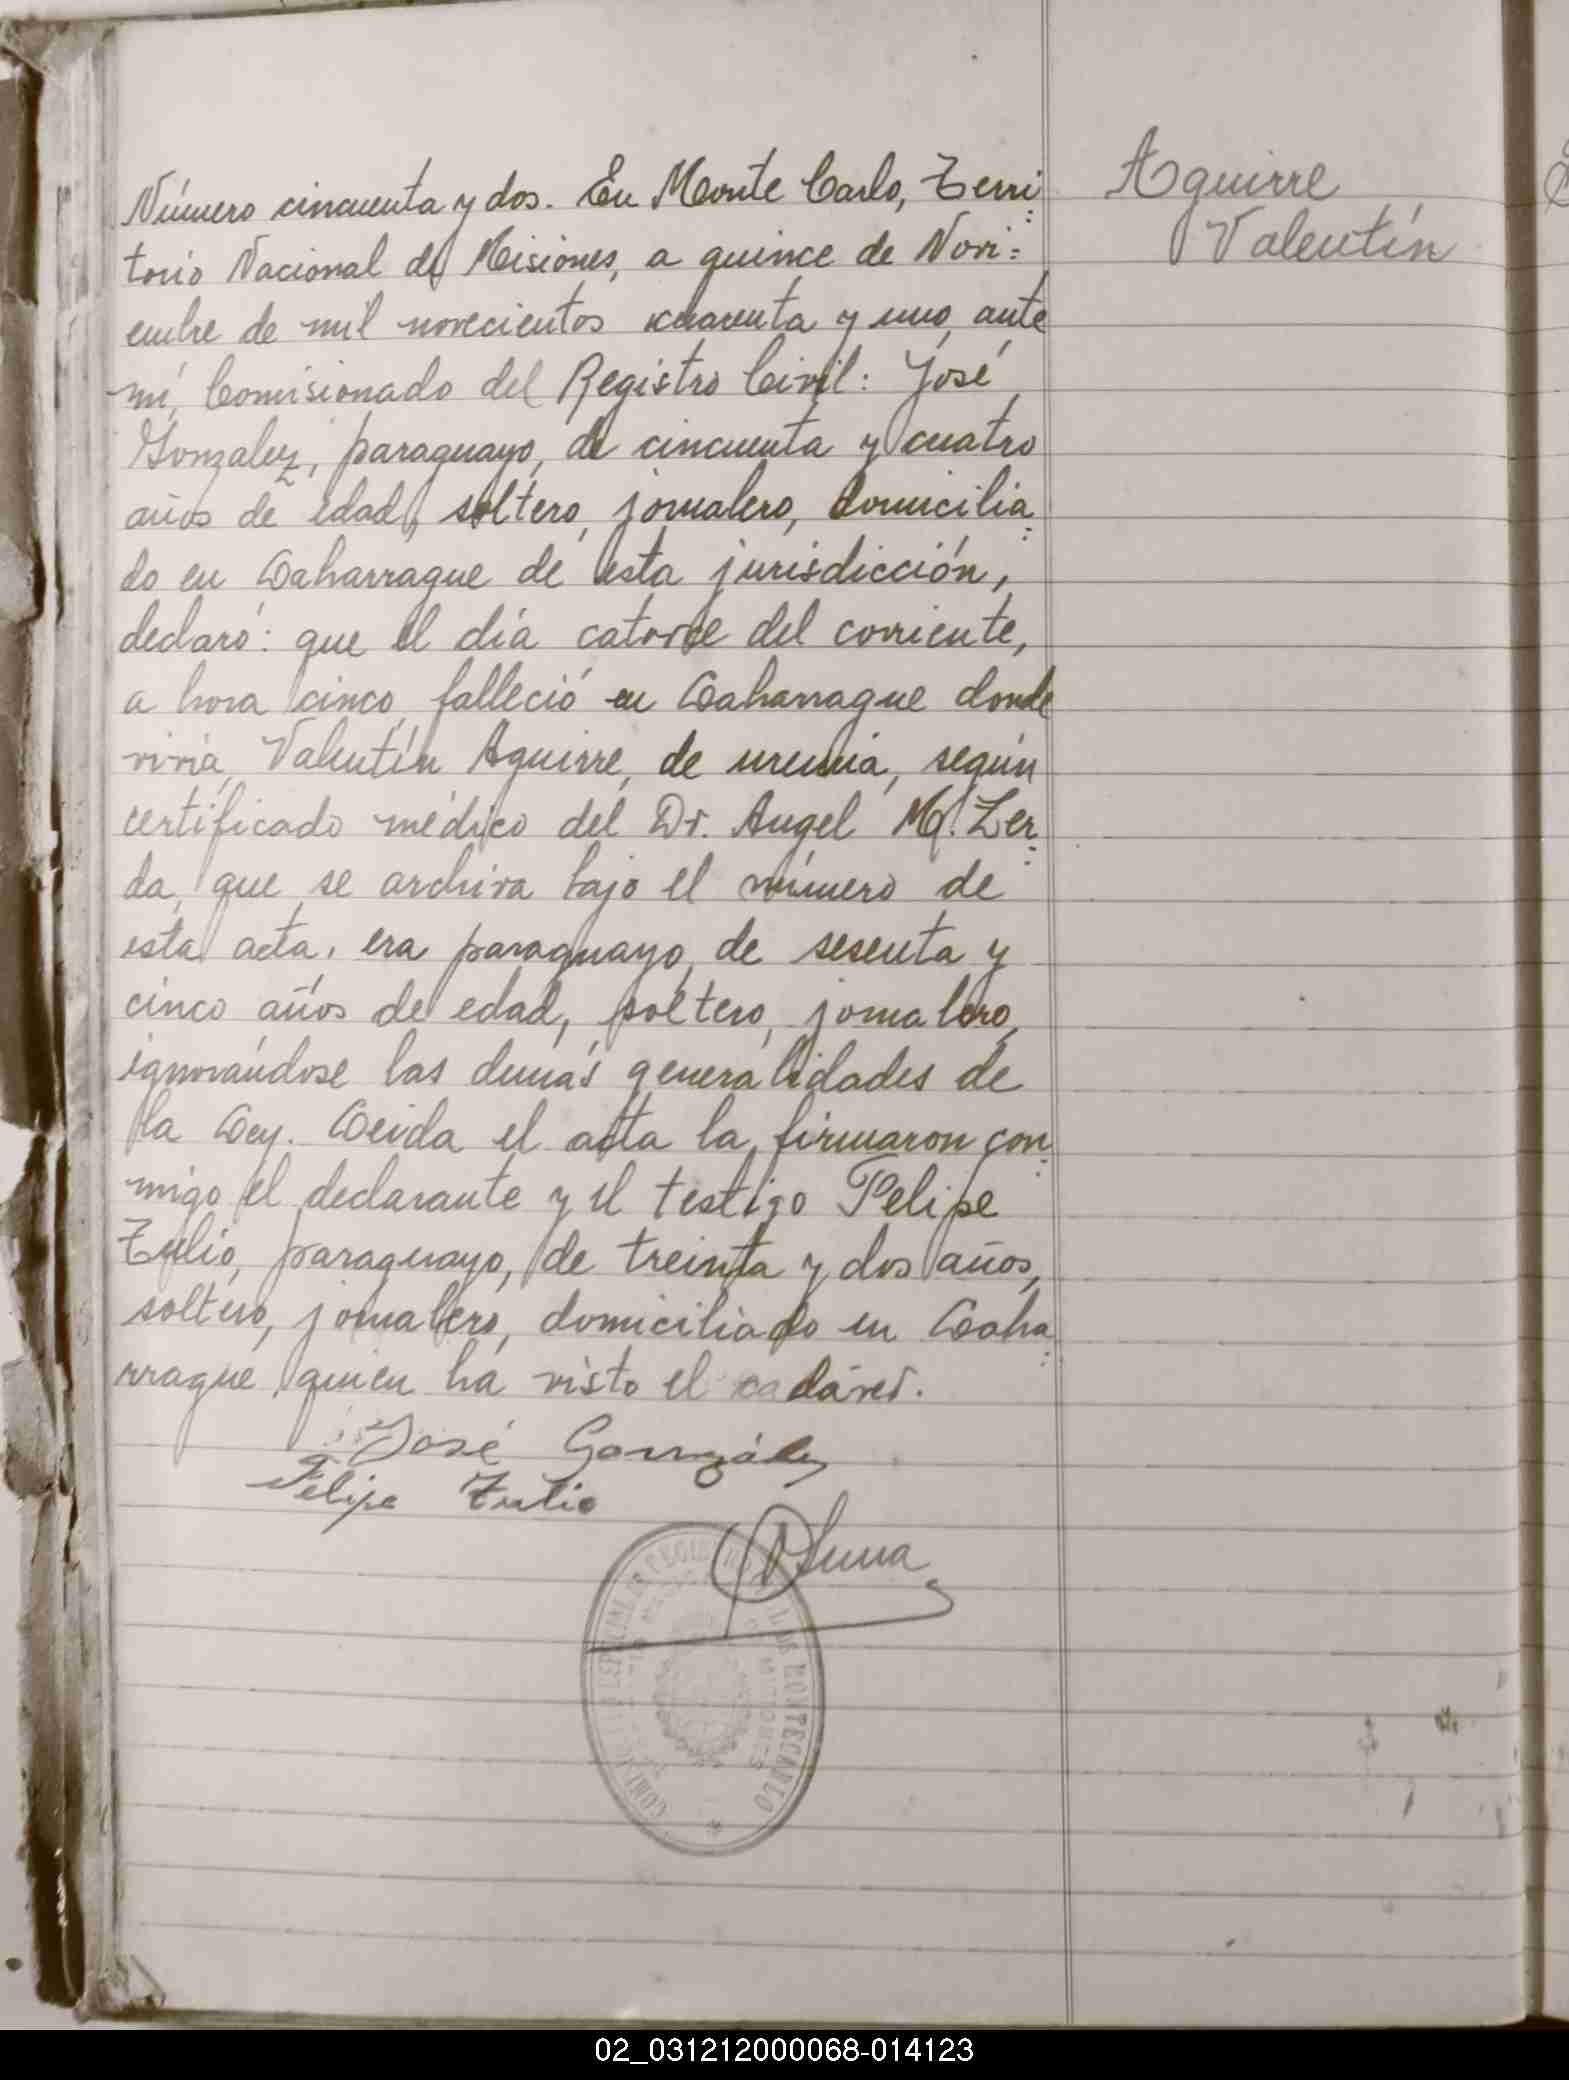 Aguirre
Valentín
Número cincuenta y dos. En Monte Carlo, Terri=
torio Nacional de Misiones, a quince de Novi=
embre de mil novecientos cuarenta y uno, ante
mí, Comisionado del Registro Civil: José
Gonzalez, paraguayo, de cincuenta y cuatro
años de edad, soltero, jornalero, domicilia=
do en Laharrague de esta jurisdicción,
declaró: que el día catorce del corriente,
a hora cinco, falleció en Laharrague donde
vivía, Valentín Aguirre, de uremia, según
certificado médico del Dr. Angel M. Zer=
da, que se archiva bajo el número de
esta acta, era paraguayo, de sesenta y
cinco años de edad, soltero, jornalero,
ignorándose las demás generalidades de
la Ley. Leída el acta la firmaron con=
migo el declarante y el testigo Felipe
Tulio, paraguayo, de treinta y dos años,
soltero, jornalero, domiciliado en Laha=
rrague, quien ha visto el cadáver.
José Gonzáles
Felipe Tulio
Luna
MONTECARLO
MISIONES
02_031212000068-014123